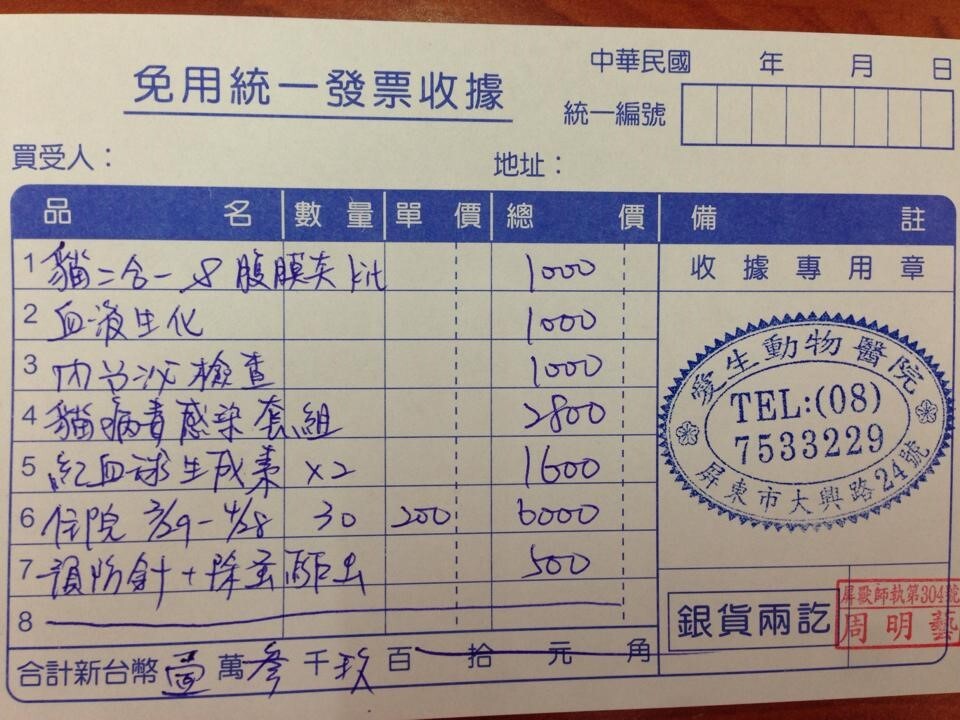 中華民國 年 月 日
免用統一發票收據
統一編號
買受人： 地址：
品名 數量 單價 總價 備註
1 貓二合一 & 腹膜炎 kit 1000
收據專用章
2 血液生化 1000
3 內分泌檢查 1000
4 貓病毒感染套組 2800
5 紅血球生成素 x2 1600
6 住院 3/29-4/28 30 200 6000
7 預防針+除蚤 驅虫 500
8
愛生動物醫院
TEL:(08)
7533229
屏東市大興路24號
銀貨兩訖
屏獸師執第304號
周明藝
合計新台幣 壹萬參千玖百拾元角